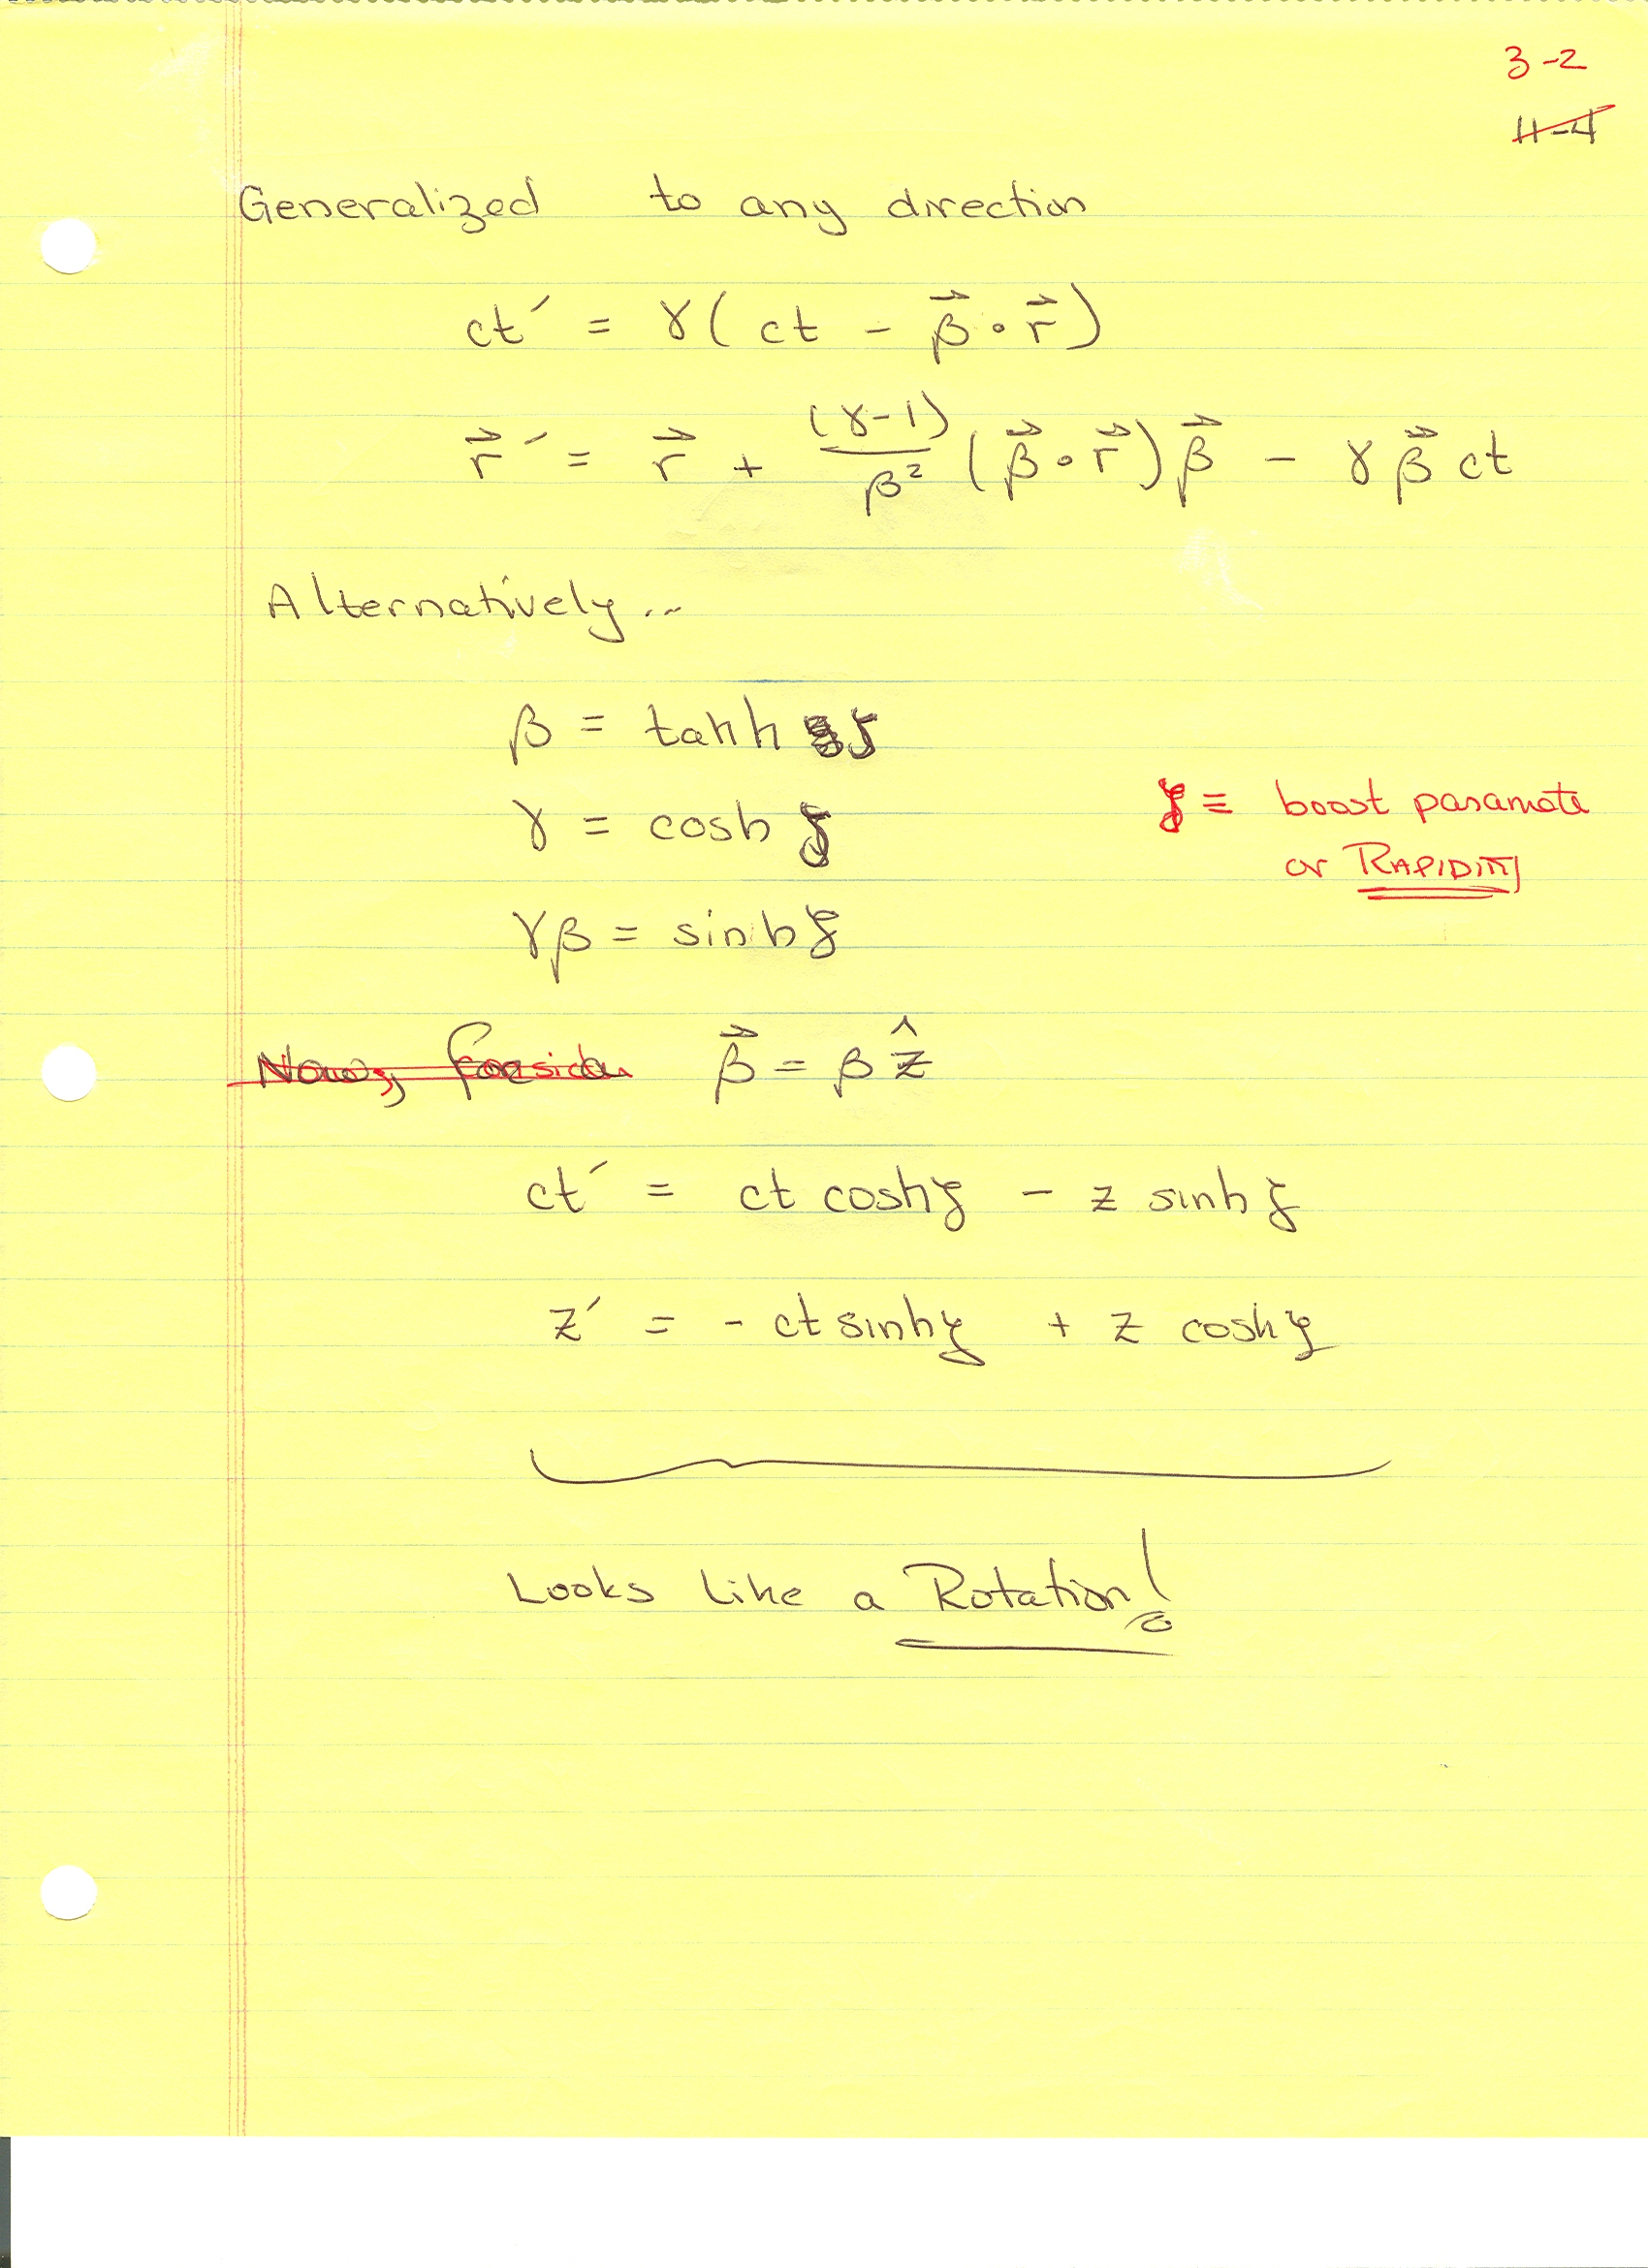 3-2
11-4
Generalized to any direction
ct′ = γ( ct - β⃗ · r⃗ )
r⃗′ = r⃗ + (γ-1)/β² (β⃗ · r⃗) β⃗ - γ β⃗ ct
Alternatively...
β = tanh ζ
γ = cosh ζ
ζ ≡ boost paramate
or RAPIDITY
γβ = sinh ζ
Now, Consider β⃗ = β ẑ
ct′ = ct cosh ζ - z sinh ζ
z′ = - ct sinh ζ + z cosh ζ
Looks like a Rotation!